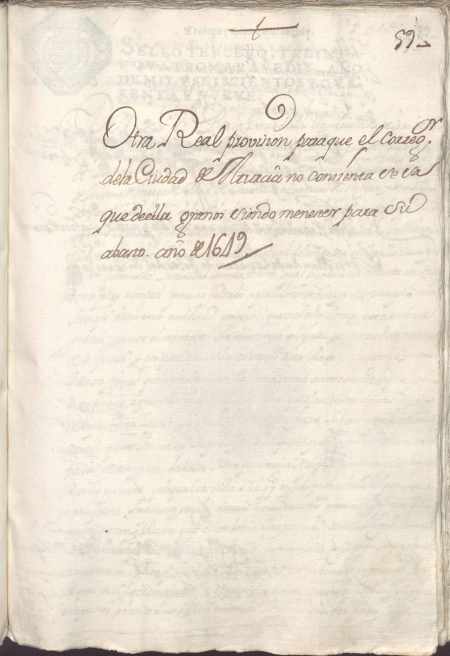 59
Otra, Real provision, para que el Correg.or
de la Ciudad de Murcia no consienta se sa
que de ella granos siendo menester para su
abasto. año de 1619